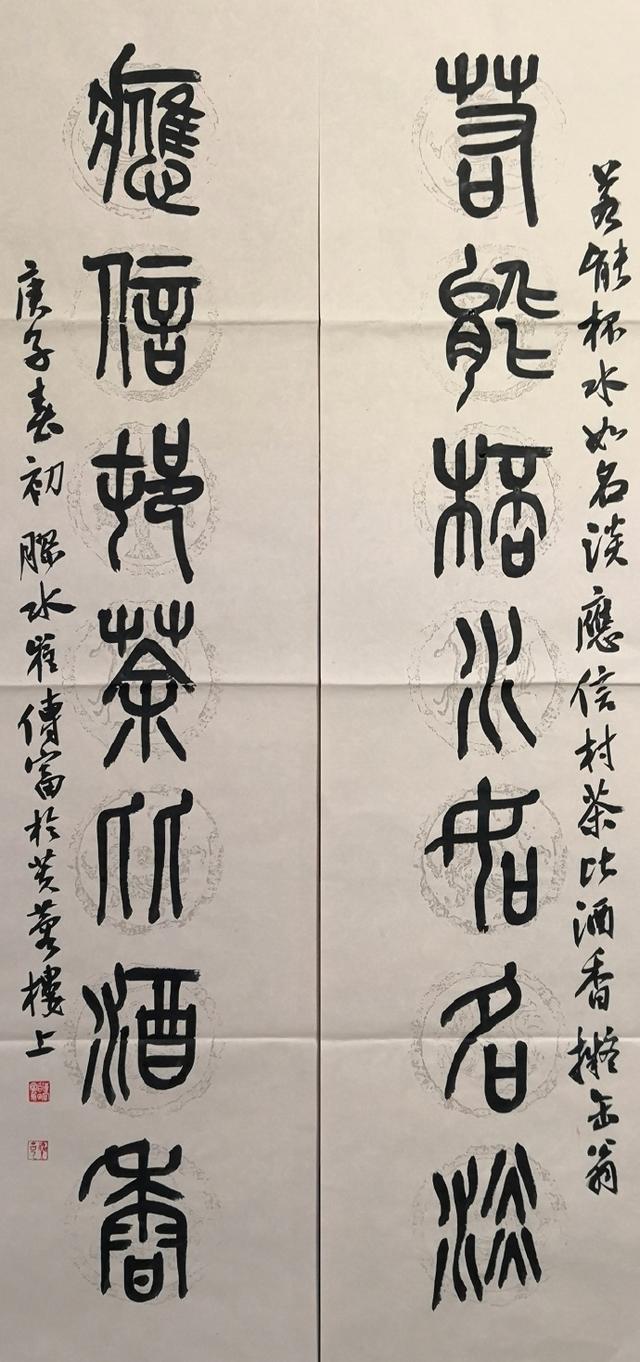 若能杯水如名淡應信村茶比酒香擬缶翁
若能桮水如名淡
應信邨茶比酒香
庚子春初膠水崔傳富於芙蓉樓上